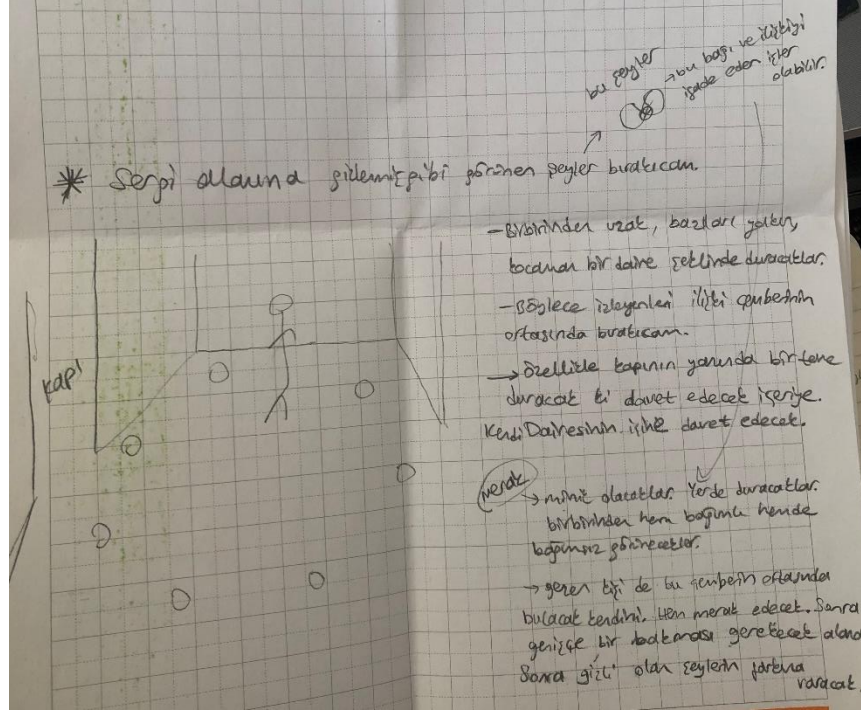 bu şeyler
→ bu bağı ve ilişkiyi
ifade eden işler
olabilir.
* Sergi alanına gizlenmiş gibi görünen şeyler bırakıcam.
- Birbirinden uzak, bazıları yakın,
kocaman bir daire şeklinde duracaklar.
- Böylece izleyenleri ilişki çemberinin
ortasında bırakıcam.
→ özellikle kapının yanında bir tane
duracak ki davet edecek içeriye.
Kendi Dairesinin içine davet edecek.
kapı
merak
→ minik olacaklar. Yerde duracaklar.
birbirinden hem bağımlı hemde
bağımsız görünecekler.
→ gezen kişi de bu çemberin ortasında
bulacak kendini. Hem merak edecek. Sonra
genişçe bir bakması gerekecek alana
Sonra gizli olan şeylerin farkına
varacak.